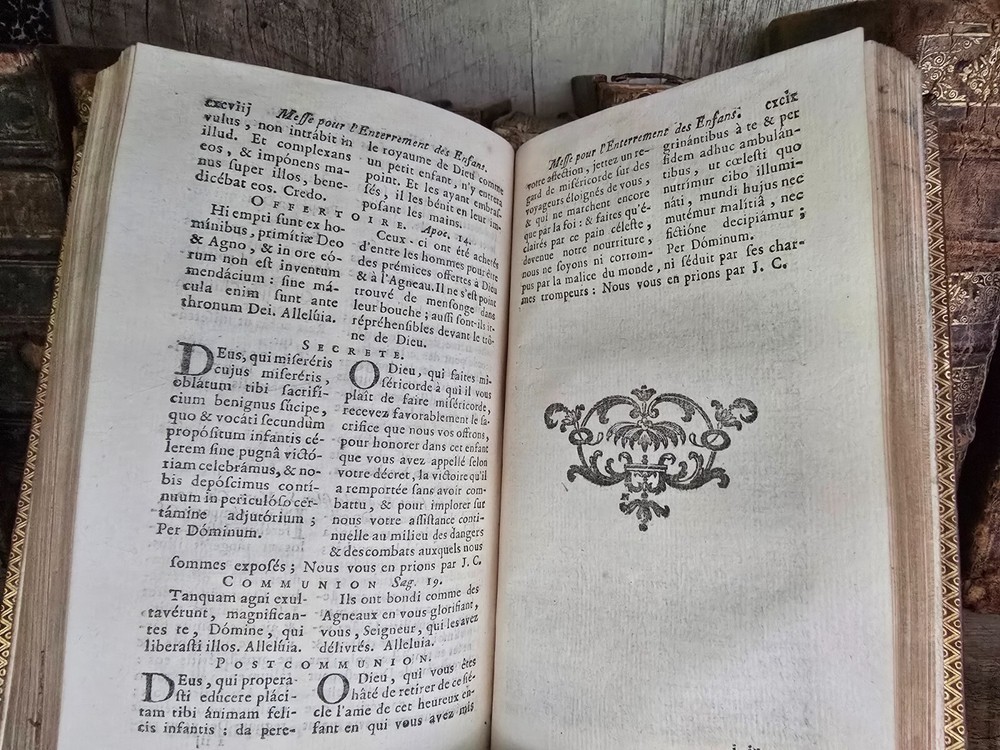 cxcviij
Meſſe pour l'Enterrement des Enfans.
vulus, non intrábit in
illud. Et complexans
eos, & impónens ma-
nus ſuper illos, bene-
dicébat eos. Credo.
le royaume de Dieu comme
un petit enfant, n'y entrera
point. Et les ayant embraſ-
ſés, il les bénit en leur im-
poſant les mains.
OFFERTOIRE. Apoc. 14.
Hi empti ſunt ex ho-
mínibus, primítiæ Deo
& Agno, & in ore eó-
rum non eſt inventum
mendácium : ſine má-
cula enim ſunt ante
thronum Dei. Alleluia.
Ceux-ci ont été achetés
d'entre les hommes pour être
des prémices offertes à Dieu
& à l'Agneau. Il ne s'eſt point
trouvé de menſonge dans
leur bouche ; auſſi ſont-ils ir-
répréhenſibles devant le trô-
ne de Dieu.
SECRETE.
DEus, qui miſeréris
cujus miſeréris,
oblátum tibi ſacrifí-
cium benignus ſúcipe,
quo & vocáti ſecundùm
propóſitum infantis cé-
lerem ſine pugnâ victó-
riam celebrámus, & no-
bis depóſcimus contí-
nuum in periculóſo cer-
támine adjutórium ;
Per Dóminum.
O Dieu, qui faites mi-
ſéricorde à qui il vous
plaît de faire miſéricorde,
recevez favorablement le ſa-
crifice que nous vos offrons,
pour honorer dans cet enfant
que vous avez appellé ſelon
votre décret, la victoire qu'il
a remportée ſans avoir com-
battu, & pour implorer ſur
nous votre aſſiſtance conti-
nuelle au milieu des dangers
& des combats auxquels nous
ſommes expoſés ; Nous vous en prions par J. C.
COMMUNION Sag. 19.
Tanquam agni exul-
tavérunt, magnifican-
tes te, Dómine, qui
liberaſti illos. Alleluia.
Ils ont bondi comme des
Agneaux en vous glorifiant,
vous, Seigneur, qui les avez
délivrés. Alleluia.
POSTCOMMUNION.
DEus, qui propera-
ſti edúcere pláci-
tam tibi ánimam felí-
cis infantis ; da pere-
O Dieu, qui vous êtes
hâté de retirer de ce ſié-
cle l'ame de cet heureux en-
fant en qui vous avez mis
Meſſe pour l'Enterrement des Enfans.
cxcix
votre affection, jettez un re-
gard de miſéricorde ſur des
voyageurs éloignés de vous,
& qui ne marchent encore
que par la foi : & faites qu'é-
clairés par ce pain céleſte,
devenu notre nourriture,
nous ne ſoyons ni corrom-
pus par la malice du monde, ni ſéduit par ſes char-
mes trompeurs : Nous vous en prions par J. C.
grinántibus à te & per
fidem adhuc ambulán-
tibus, ut cœleſti quo
nutrímur cibo illumi-
náti, mundi hujus nec
mutémur malítiâ, nec
fictióne decipiámur ;
Per Dóminum.